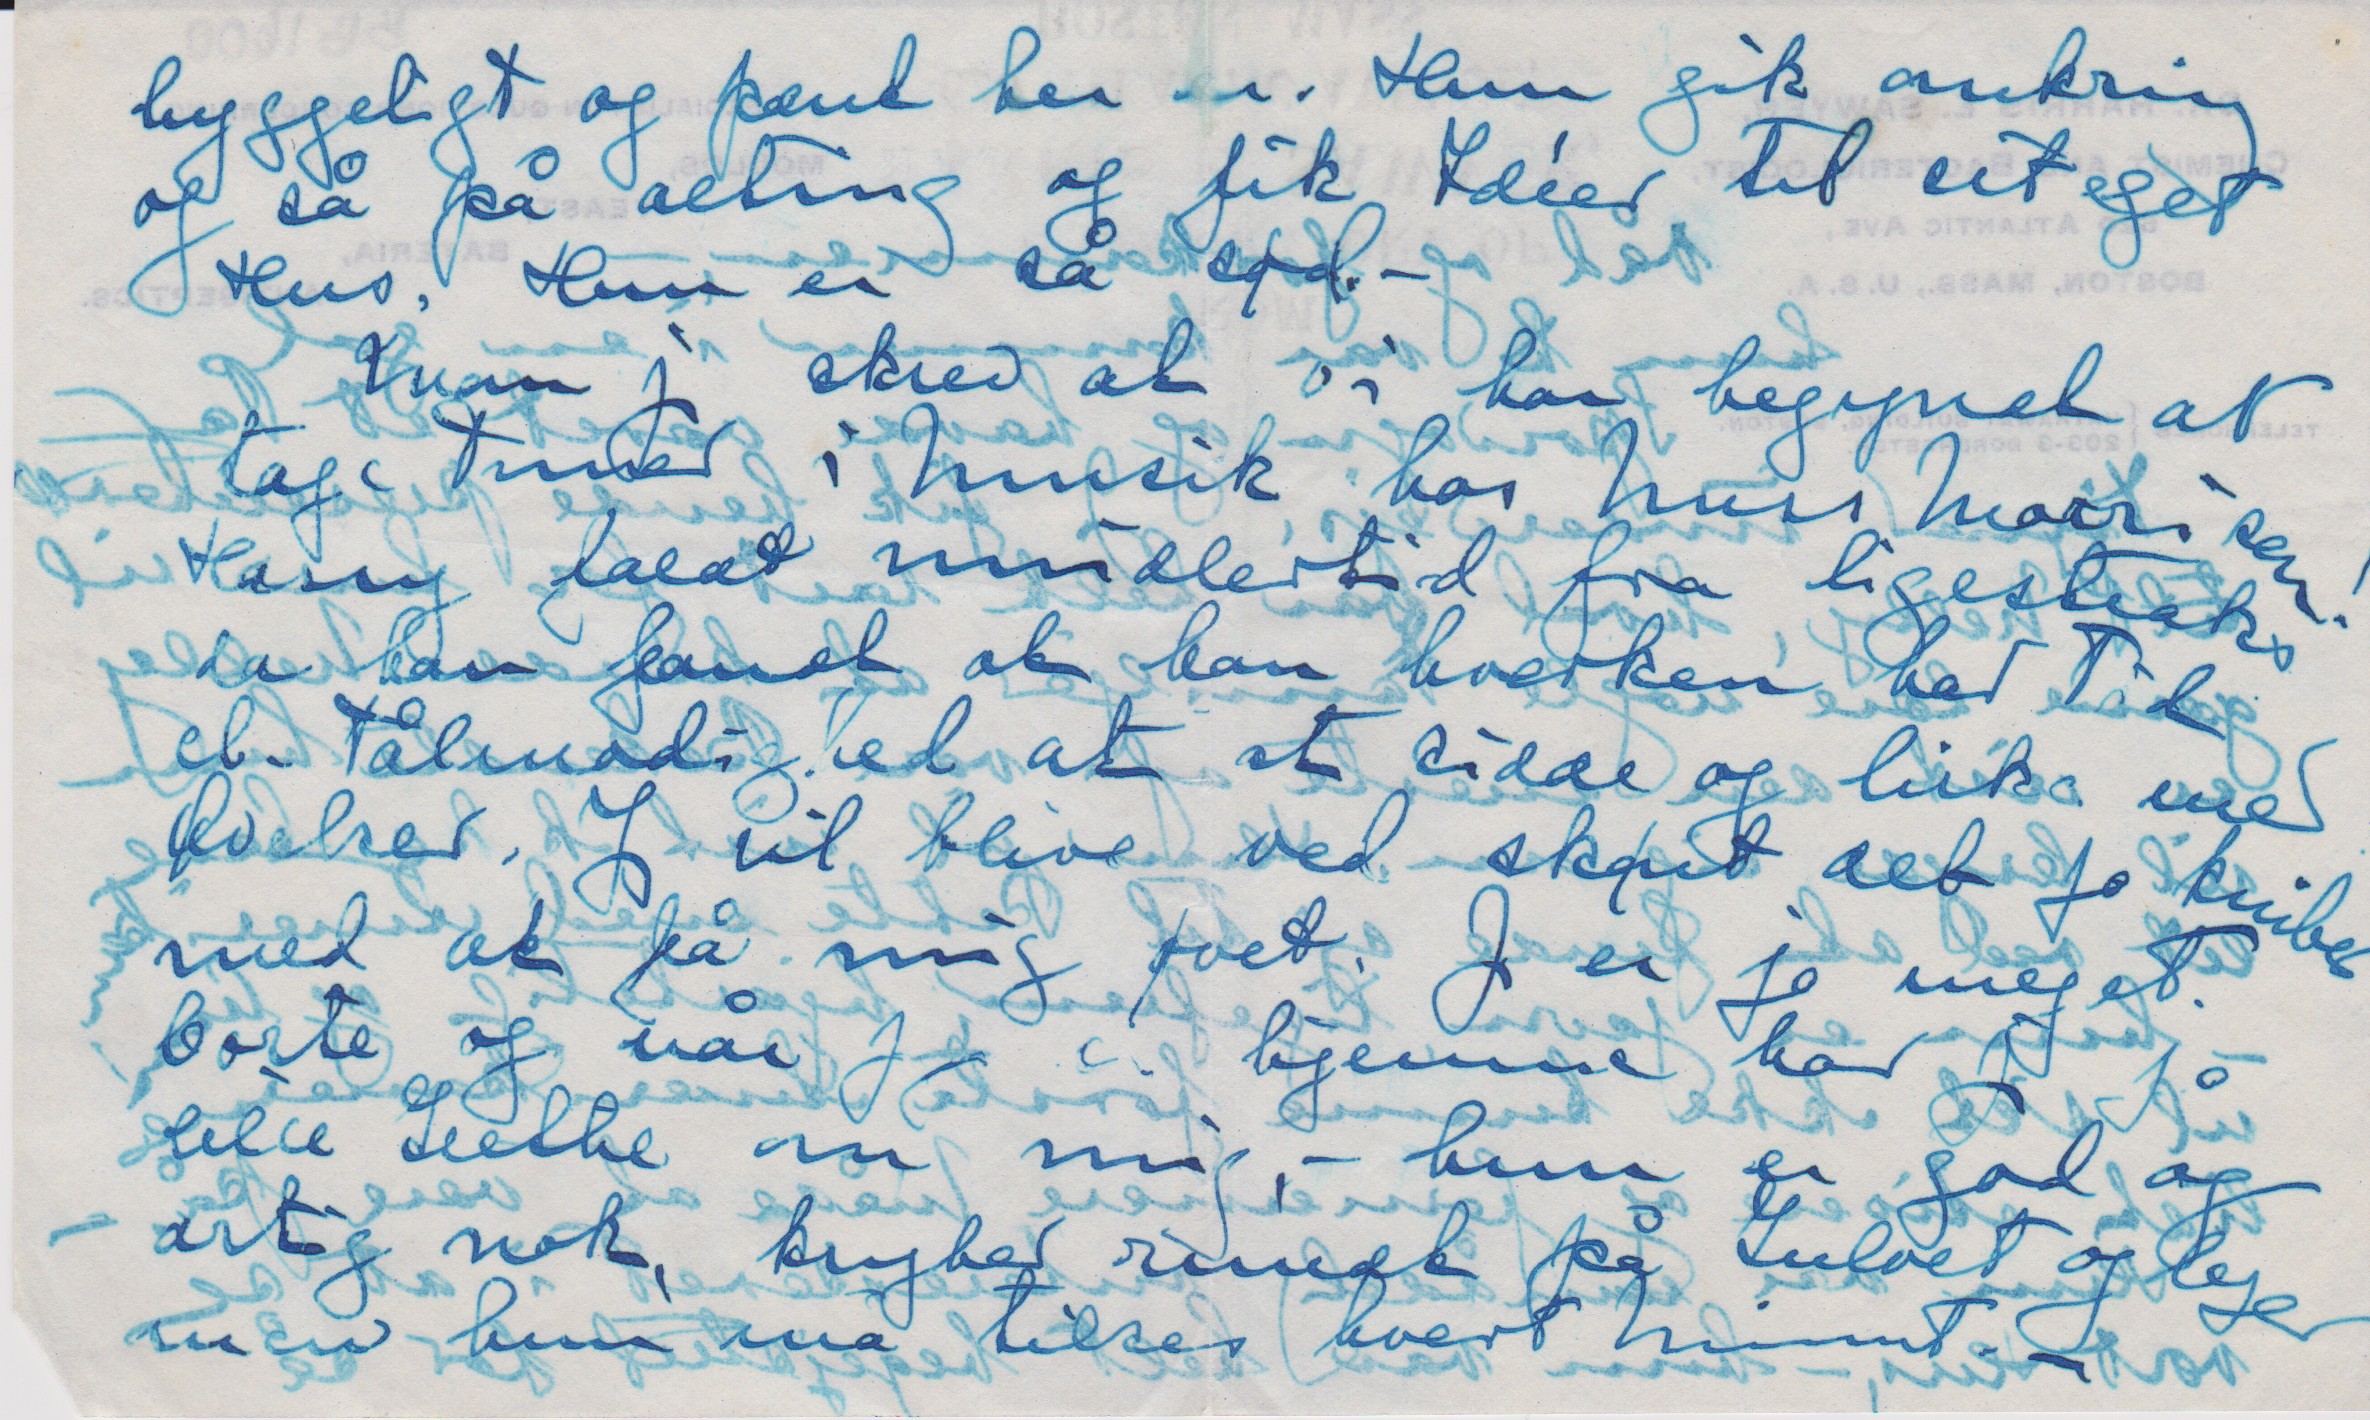 hyggeligt og pænt her er. Hun gik omkring
og så på alting og fik Idéer til sit eget
Hus. Hun er så sød. –
Mon j skrev at vi har begyndt at
tage Timer i Musik hos Miss Morrison!
Harry faldt imidlertid fra ligestraks
da han fandt at han hverken har Tid
el. Tålmodighed at at sidde og lirke med
Øvelser. J vil blive ved skønt det jo kniber
med at få mig øvet. J er jo meget
borte og når j er hjemme har j jo
lille Grethe om mig, – hun er god og
artig nok, kryber rundt på Gulvet og leger
men hun må tilses hvert Minut. –